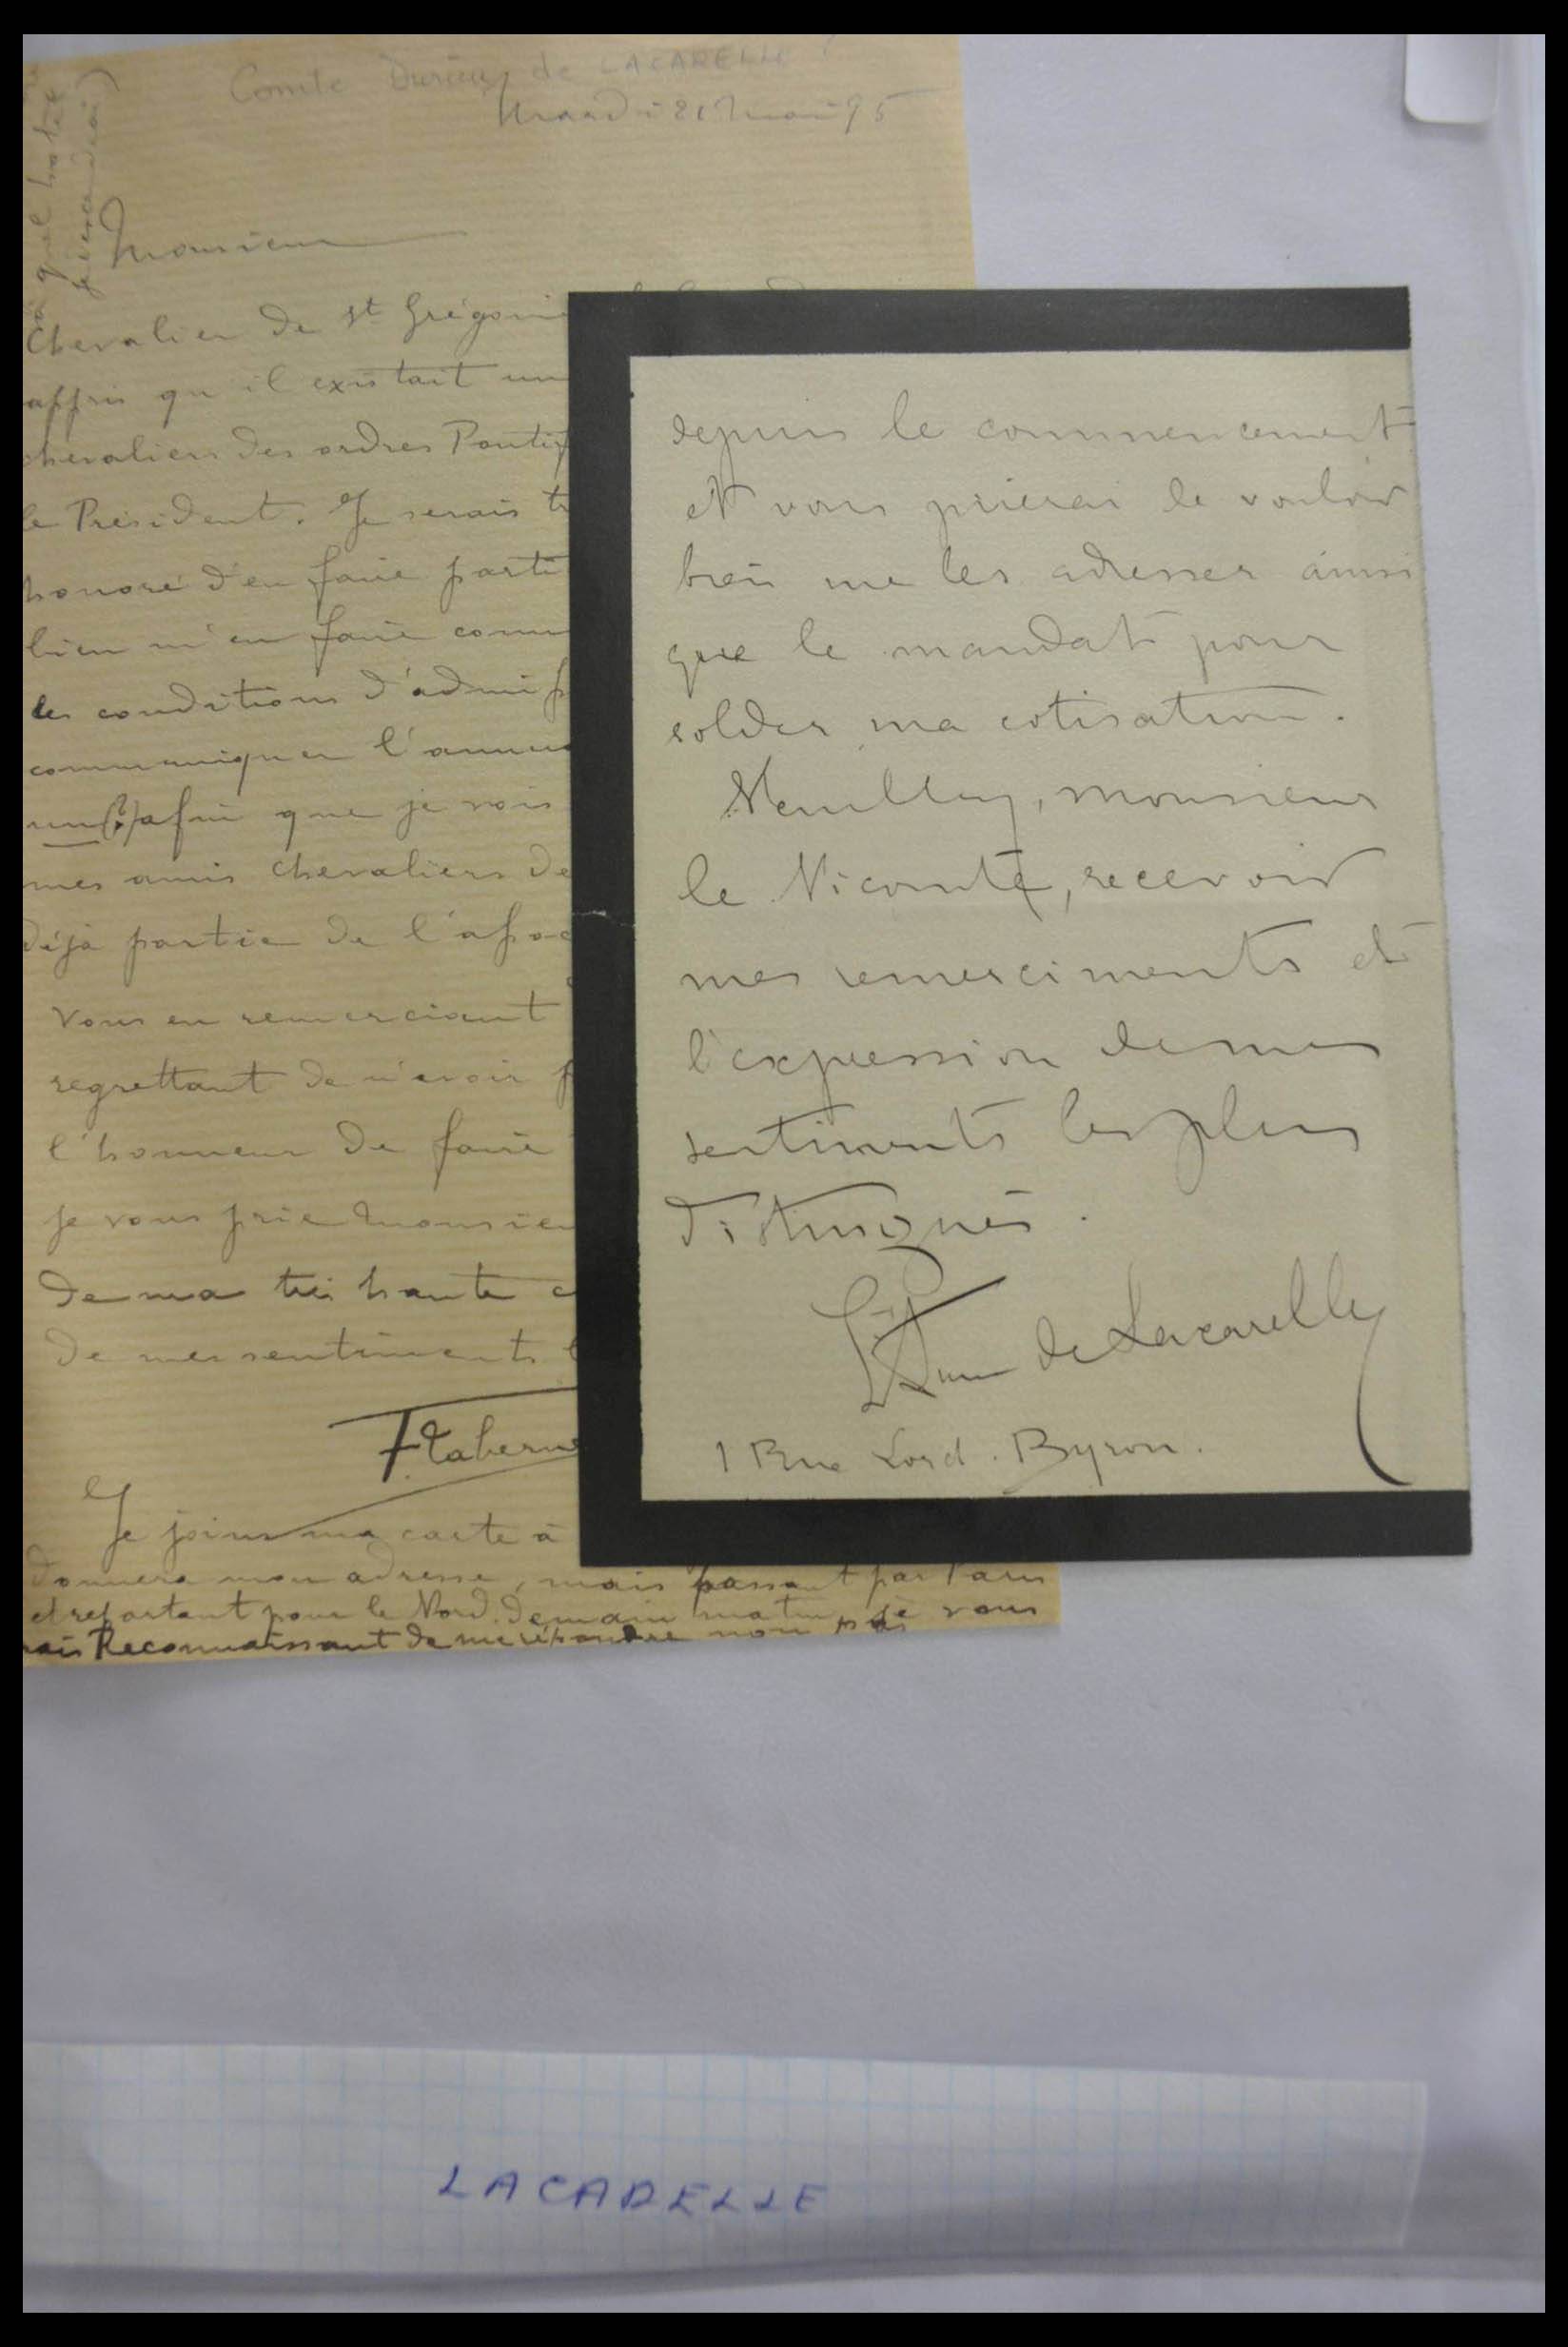 Comte Durieu de LACARELLE
Mardi 21 Mai 95
à quel hôtel
je descendrai)
Monsieur
Chevalier de St Grégoire
appris qu'il existait une
chevaliers des ordres Pontif
le Président. Je serais tr
honoré d'en faire parti
bien m'en faire conn
les conditions d'admiss
communiquer l'annua
un (?) afin que je vois
mes amis chevaliers de
déjà partie de l'assoc
Vous en remerciant
regrettant de n'avoir p
l'honneur de faire
je vous prie Monsieu
de ma très haute c
de mes sentiments
F Taberne
Je joins ma carte à
donnera mon adresse, mais passant par Paris
et repartant pour le Nord demain matin, je vous
rais Reconnaissant de me répondre non pas
depuis le commencement
et vous prierai de vouloir
bien me les adresser ainsi
que le mandat pour
solder ma cotisation.
Veuillez, monsieur
le Vicomte, recevoir
mes remerciments et
l'expression de mes
sentiments les plus
distingués.
de Lacarelle
1 Rue Lord. Byron.
LACARELLE